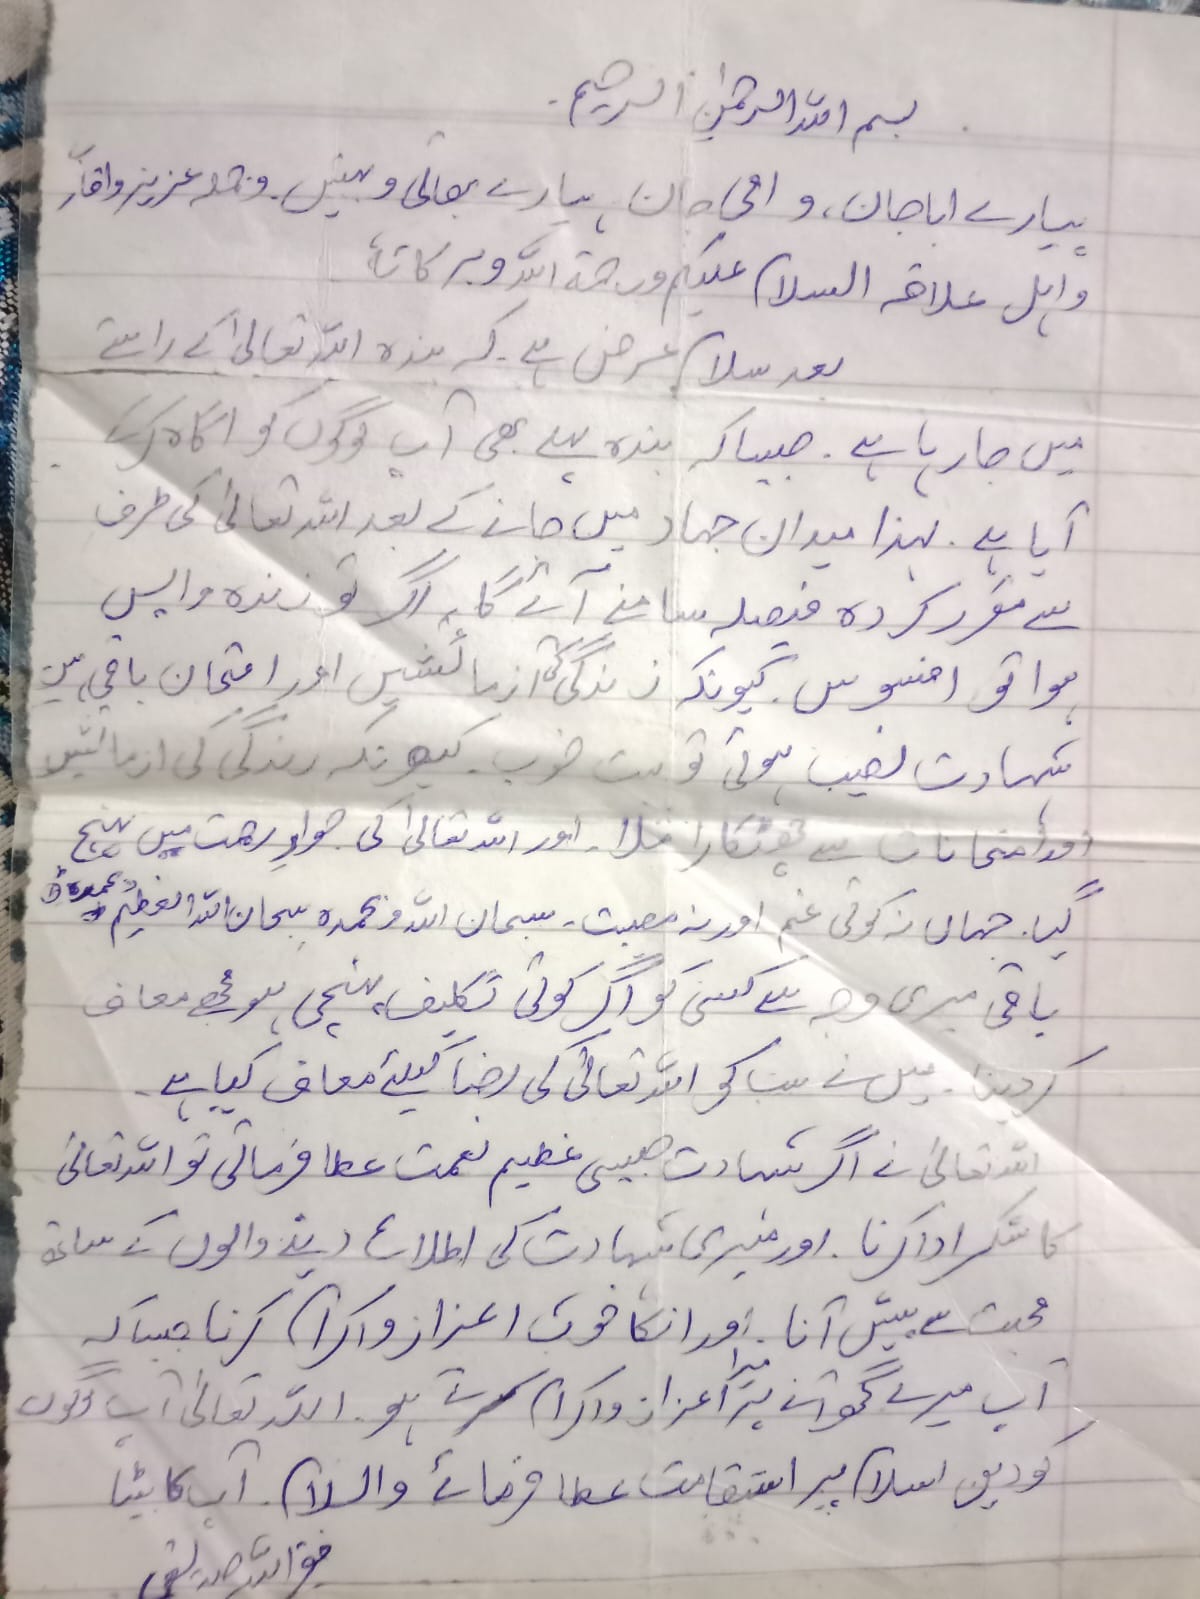 بسم اللہ الرحمٰن الرحیم۔
پیارے اباجان، و امی جان پیارے بھائی و بہنیں۔ وتمام عزیز واقارب
واہل علاقہ السلام علیکم ورحمۃ اللہ وبرکاتہ
بعد سلام عرض ہے۔ کہ بندہ اللہ تعالیٰ کے راستے
میں جارہا ہے۔ جیساکہ بندہ پہلے بھی آپ لوگوں کو آگاہ کرکے
آیا ہے۔ لہذا میدان جہاد میں جانے کے بعد اللہ تعالیٰ کی طرف
سے مقرر کردہ فیصلہ سامنے آئے گا، اگر تو زندہ واپس
ہوا تو افسوس۔ کیونکہ زندگی کی آزمائشیں اور امتحان باقی ہیں
شہادت نصیب ہوئی تو بہت خوب۔ کیونکہ زندگی کی ازمائشیں
اور امتحانات سے چھٹکارا ملا۔ اور اللہ تعالیٰ کی جوار رحمت میں پہنچ
گیا۔ جہاں نہ کوئی غم اور نہ مصیبت۔ سبحان اللہ وبحمدہ سبحان اللہ العظیم وبحمدہ
باقی میری وجہ سے کسی کو اگر کوئی تکلیف پہنچی ہو مجھے معاف
کردینا۔ میں نے سب کو اللہ تعالیٰ کی رضا کیلئے معاف کیا ہے۔
اللہ تعالیٰ نے اگر شہادت جیسی عظیم نعمت عطا فرمائی تو اللہ تعالیٰ
کا شکر ادا کرنا۔ اور میری شہادت کی اطلاع دینے والوں کے ساتھ
محبت سے پیش آنا۔ اور انکا خوب اعزاز واکرام کرنا جیساکہ
آپ میرے گھر آنے پر میرا اعزاز واکرام کرتے ہو۔ اللہ تعالیٰ آپ لوگوں
کو دین اسلام پر استقامت عطا فرمائے والسلام۔ آپ کا بیٹا
اللہ صدیقی